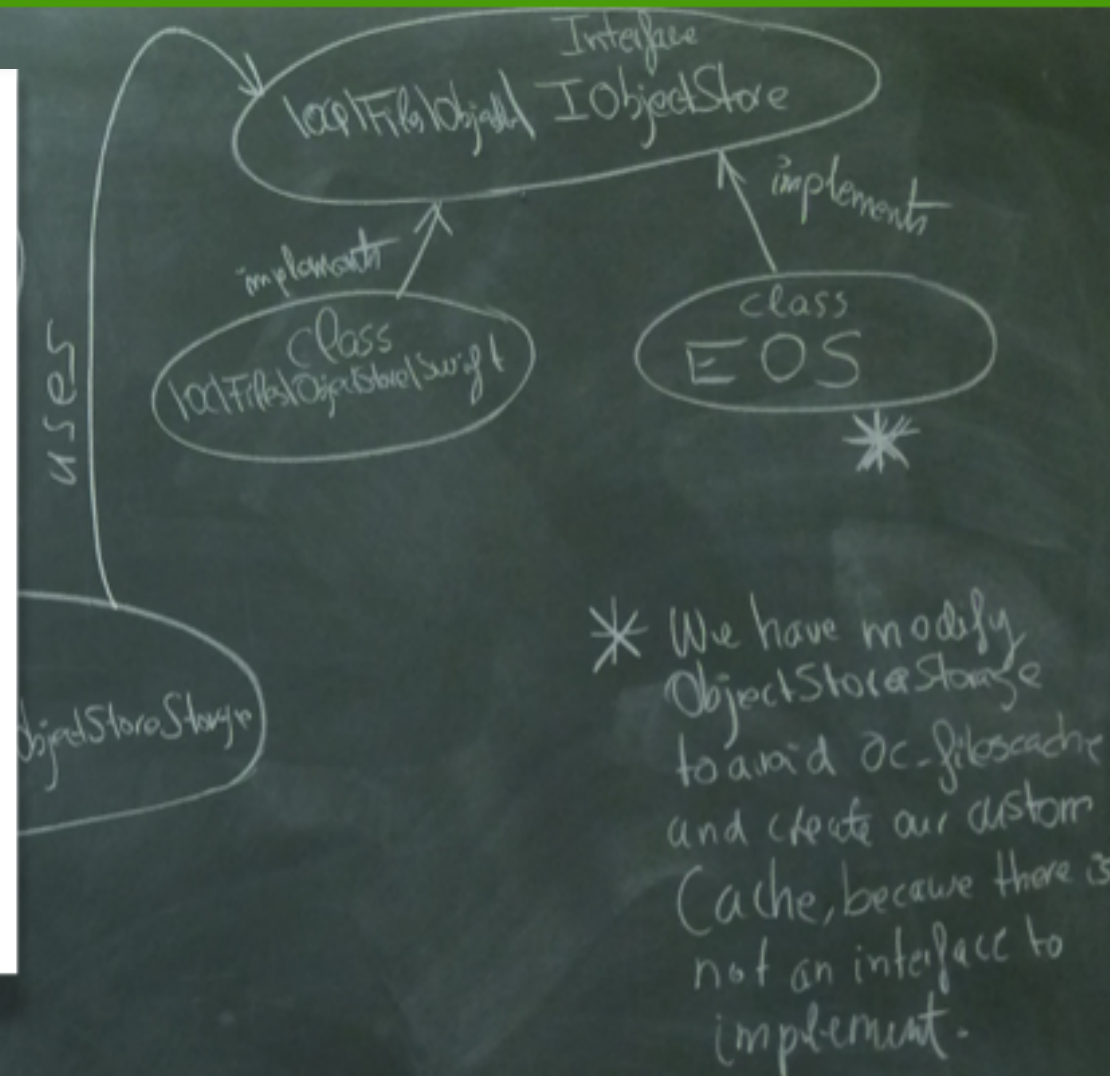 Interface
IObjectStore
implements
implements
class
class
EOS
uses
ObjectStoreStorage
* We have modify
ObjectStoreStorage
to avoid oc_filescache
and create our custom
Cache, because there is
not an interface to
implement.